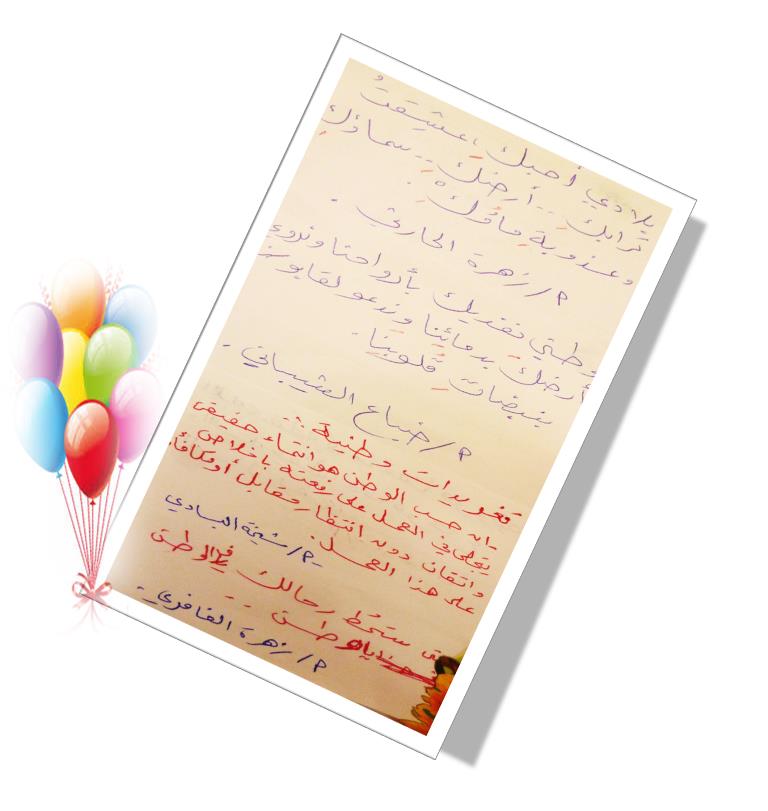 بلادي أحبك ،عشقتُ
ترابك .. أرضك .. سماؤك
وعذوبة ماؤك .
م/ زهرة الحارثي .
وطني نفديك بأرواحنا ونروي
أرضك بدمائنا وندعو لقابوس
بنبضات قلوبنا .
م/ ضياع الشيباني .
مفردات وطنية :
-إن حب الوطن هو انتماء حقيقي
يتجلى في العمل على رفعته بإخلاص
وإتقان دون انتظار مقابل أو مكافأة
على هذا العمل.
-م/ شيخة البادي
متى ستحط رحالك يا وطن
وطني ..
م/ زهرة الغافري .